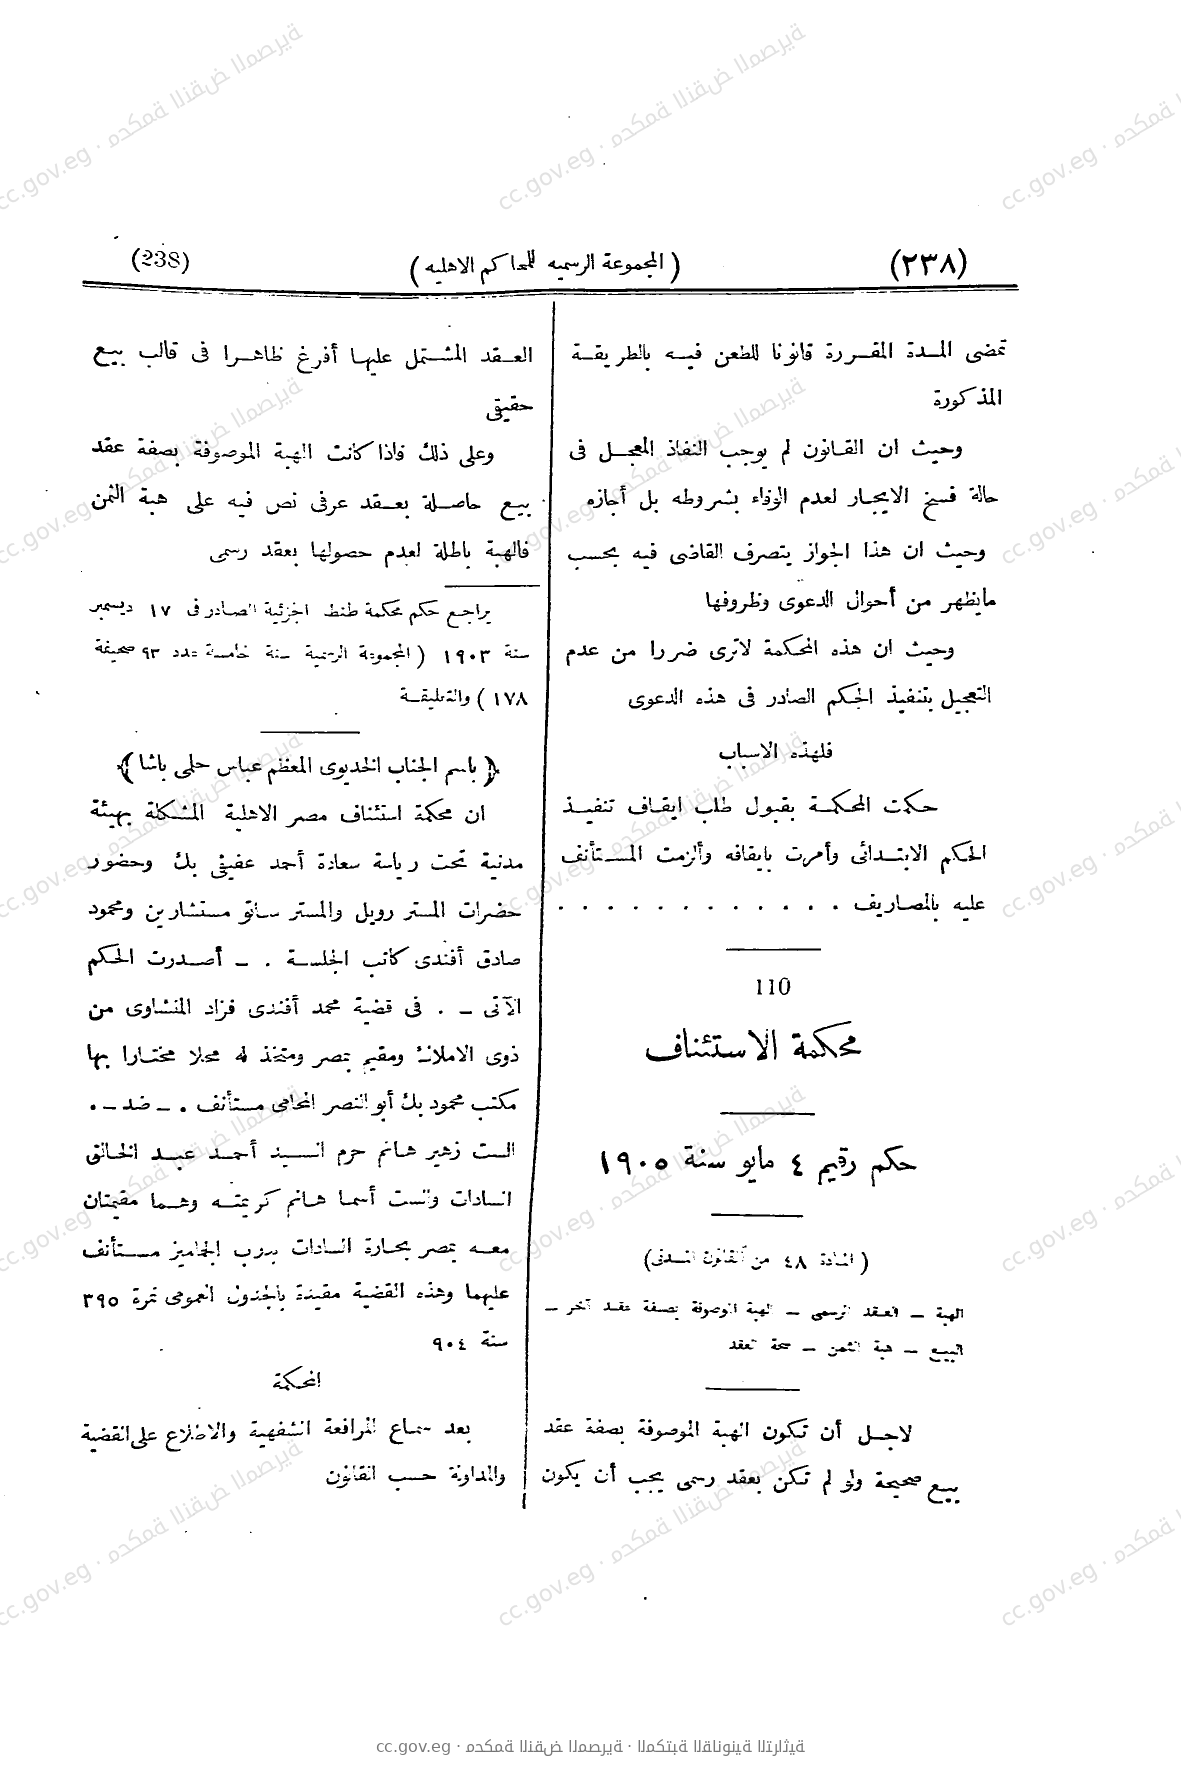 (٢٣٨)
( المجموعة الرسميه للمحاكم الاهليه )
(238)
تمضى المدة المقررة قانونا للطعن فيه بالطريقة
المذكورة
وحيث ان القانون لم يوجب النفاذ المعجل فى
حالة فسخ الايجار لعدم الوفاء بشروطه بل أجازه
وحيث ان هذا الجواز يتصرف القاضى فيه بحسب
مايظهر من أحوال الدعوى وظروفها
وحيث ان هذه المحكمة لاترى ضررا من عدم
التعجيل بتنفيذ الحكم الصادر فى هذه الدعوى
فلهذه الاسباب
حكمت المحكمة بقبول طلب ايقاف تنفيذ
الحكم الابتدائى وأمرت بايقافه وألزمت المستأنف
عليه بالمصاريف . . . . . . . . . . . .
110
محكمة الاستئناف
حكم رقيم ٤ مايو سنة ١٩٠٥
( المادة ٤٨ من القانون المدنى)
الهبة ــ العقد الرسمى ــ الهبة الموصوفة بصفة عقد آخر ــ
البيع ــ هبة الثمن ــ صحة العقد
لاجل أن تكون الهبة الموصوفة بصفة عقد
بيع صحيحة ولو لم تكن بعقد رسمى يجب أن يكون
العقد المشتمل عليها أفرغ ظاهرا فى قالب بيع
حقيقى
وعلى ذلك فاذا كانت الهبة الموصوفة بصفة عقد
بيع حاصلة بعقد عرفى نص فيه على هبة الثمن
فالهبة باطلة لعدم حصولها بعقد رسمى
يراجع حكم محكمة طنطا الجزئية الصادر فى ١٧ ديسمبر
سنة ١٩٠٣ ( المجموعة الرسمية سنة خامسة عدد ٩٣ صحيفة
١٧٨ ) والتعليقة
﴿ باسم الجناب الخديوى المعظم عباس حلمى باشا ﴾
ان محكمة استئناف مصر الاهلية المشكلة بهيئة
مدنية تحت رياسة سعادة أحمد عفيفى بك وحضور
حضرات المستر رويل والمستر ساتو مستشارين ومحمود
صادق أفندى كاتب الجلسة . ــ أصدرت الحكم
الآتى ــ . فى قضية محمد أفندى فؤاد المنشاوى من
ذوى الاملاك ومقيم بمصر ومتخذ له محلا مختارا بها
مكتب محمود بك أبو النصر المحامى مستأنف . ــ ضد ــ .
الست زهير هانم حرم السيد أحمد عبد الخالق
السادات والست أسما هانم كريمته وهما مقيمتان
معه بمصر بحارة السادات بدرب الجماميز مستأنف
عليهما وهذه القضية مقيدة بالجدول العمومى نمرة ٣٩٥
سنة ٩٠٤
المحكمة
بعد سماع المرافعة الشفهية والاطلاع على القضية
والمداولة حسب القانون
cc.gov.eg · محكمة النقض المصرية · المكتبة القانونية التراثية